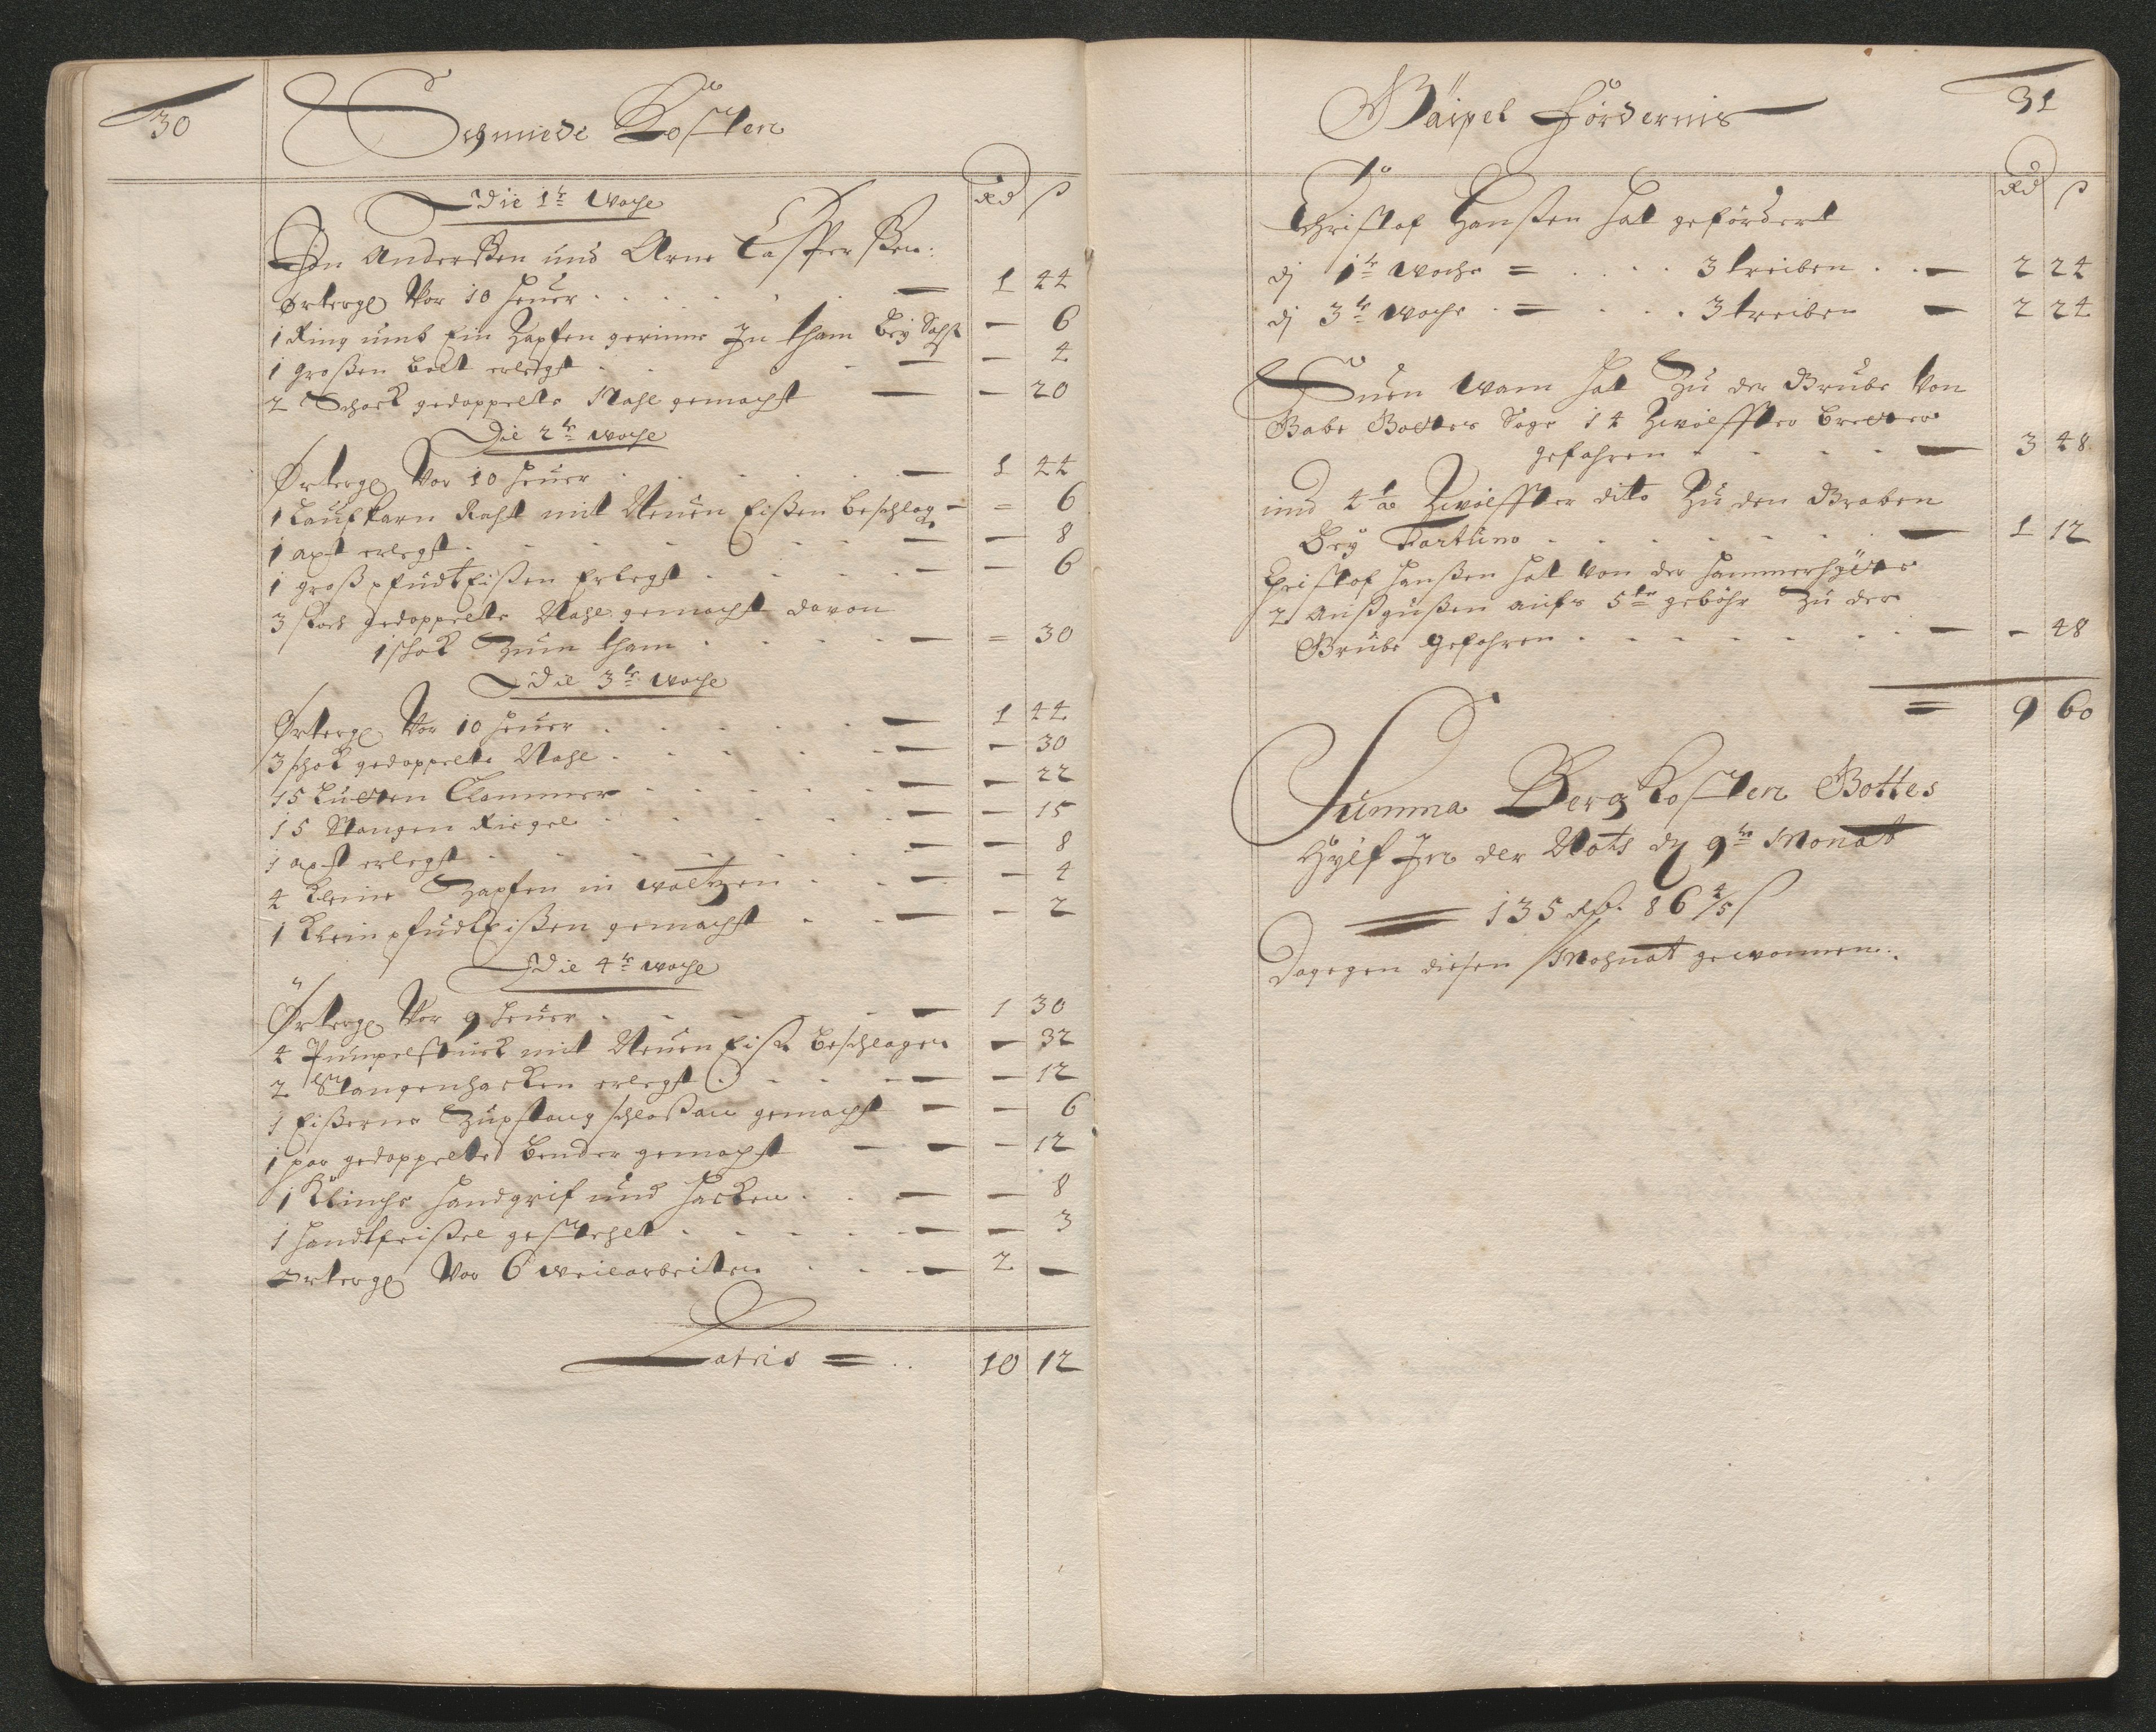 30
Schmiede Kosten
Rd ß
Die 1te Woche
Jon Anderßen und Arne Casperßen:
Örtergl Vor 10 feuer . . . . . — 1 44
1 Ring umb Ein Zapfen gerinne In tham bey — 6
1 großen bolt erlegst . . — — 4
2 Schock gedoppelte Nagl gemacht — — 20
Die 2te Woche
Örtergl Vor 10 feuer . . . . — 1 44
1 Laufkarn Raht mit Neuen Eißen beschlag = 6
1 axt erlegst . . . . . — — 8
1 groß pfudt Eißen Erlegst . . . . — — 6
3 schock gedoppelte Nagl gemacht davon
1 schok Zum tham . . . . — = 30
Die 3te Woche
Örtergl Vor 10 feuer . . . . — 1 44
3 schok gedoppelte Nagl . . . . — — 30
15 Lutten Clammer . . . . — — 22
15 Stangen Riegel . . . . — — 15
1 axt erlegst . . . . . — — 8
4 Kleine Zapfen in waltzen . . . — — 4
1 Klein pfudt Eißen gemacht . . — — 2
Die 4te Woche
Örtergl Vor 9 feuer . . . . — 1 30
4 Pumpelstuck mit Neuen Eiß beschlagen — 32
2 Stangenhacken erlegst . . . — — 12
1 Eißerne gemacht — — 6
1 par gedoppelte bender gemacht — — — 12
1 Klinche handgrif und hacken . . — — 8
1 handtfeißel gestehlt . . . . — — 3
Örtergl Vor 6 weilarbeiten . . . — 2 —
Latris = . . 10 12
31
Gäipel Fördernis
Rd ß
Christof Hanßen hat gefördert
dj 1te woche = . . . . 3 treiben . . — 2 24
dj 3te woche . = . . . . 3 treiben — 2 24
Suen wam hat Zu der Grube Von
Gabe Gottes Sage 14 Zwölffter bretter
gefahren . . . . — 3 48
und 4 1/2 Zwölffter dito Zu den Graben
Bey . . . . . . — 1 12
Christof Hanßen hat Von der hammerhytte
2 Außgußen aufs 5te geböhr Zu der
Grube gefahren . . . . . . — — 48
= 9 60
Summa Berg Kosten Gottes
Hylf In der Noth dz 9te Monat
= 135 Rß. 86 4/5 ß
Dagegen diesen Mohnat gewonnen:.